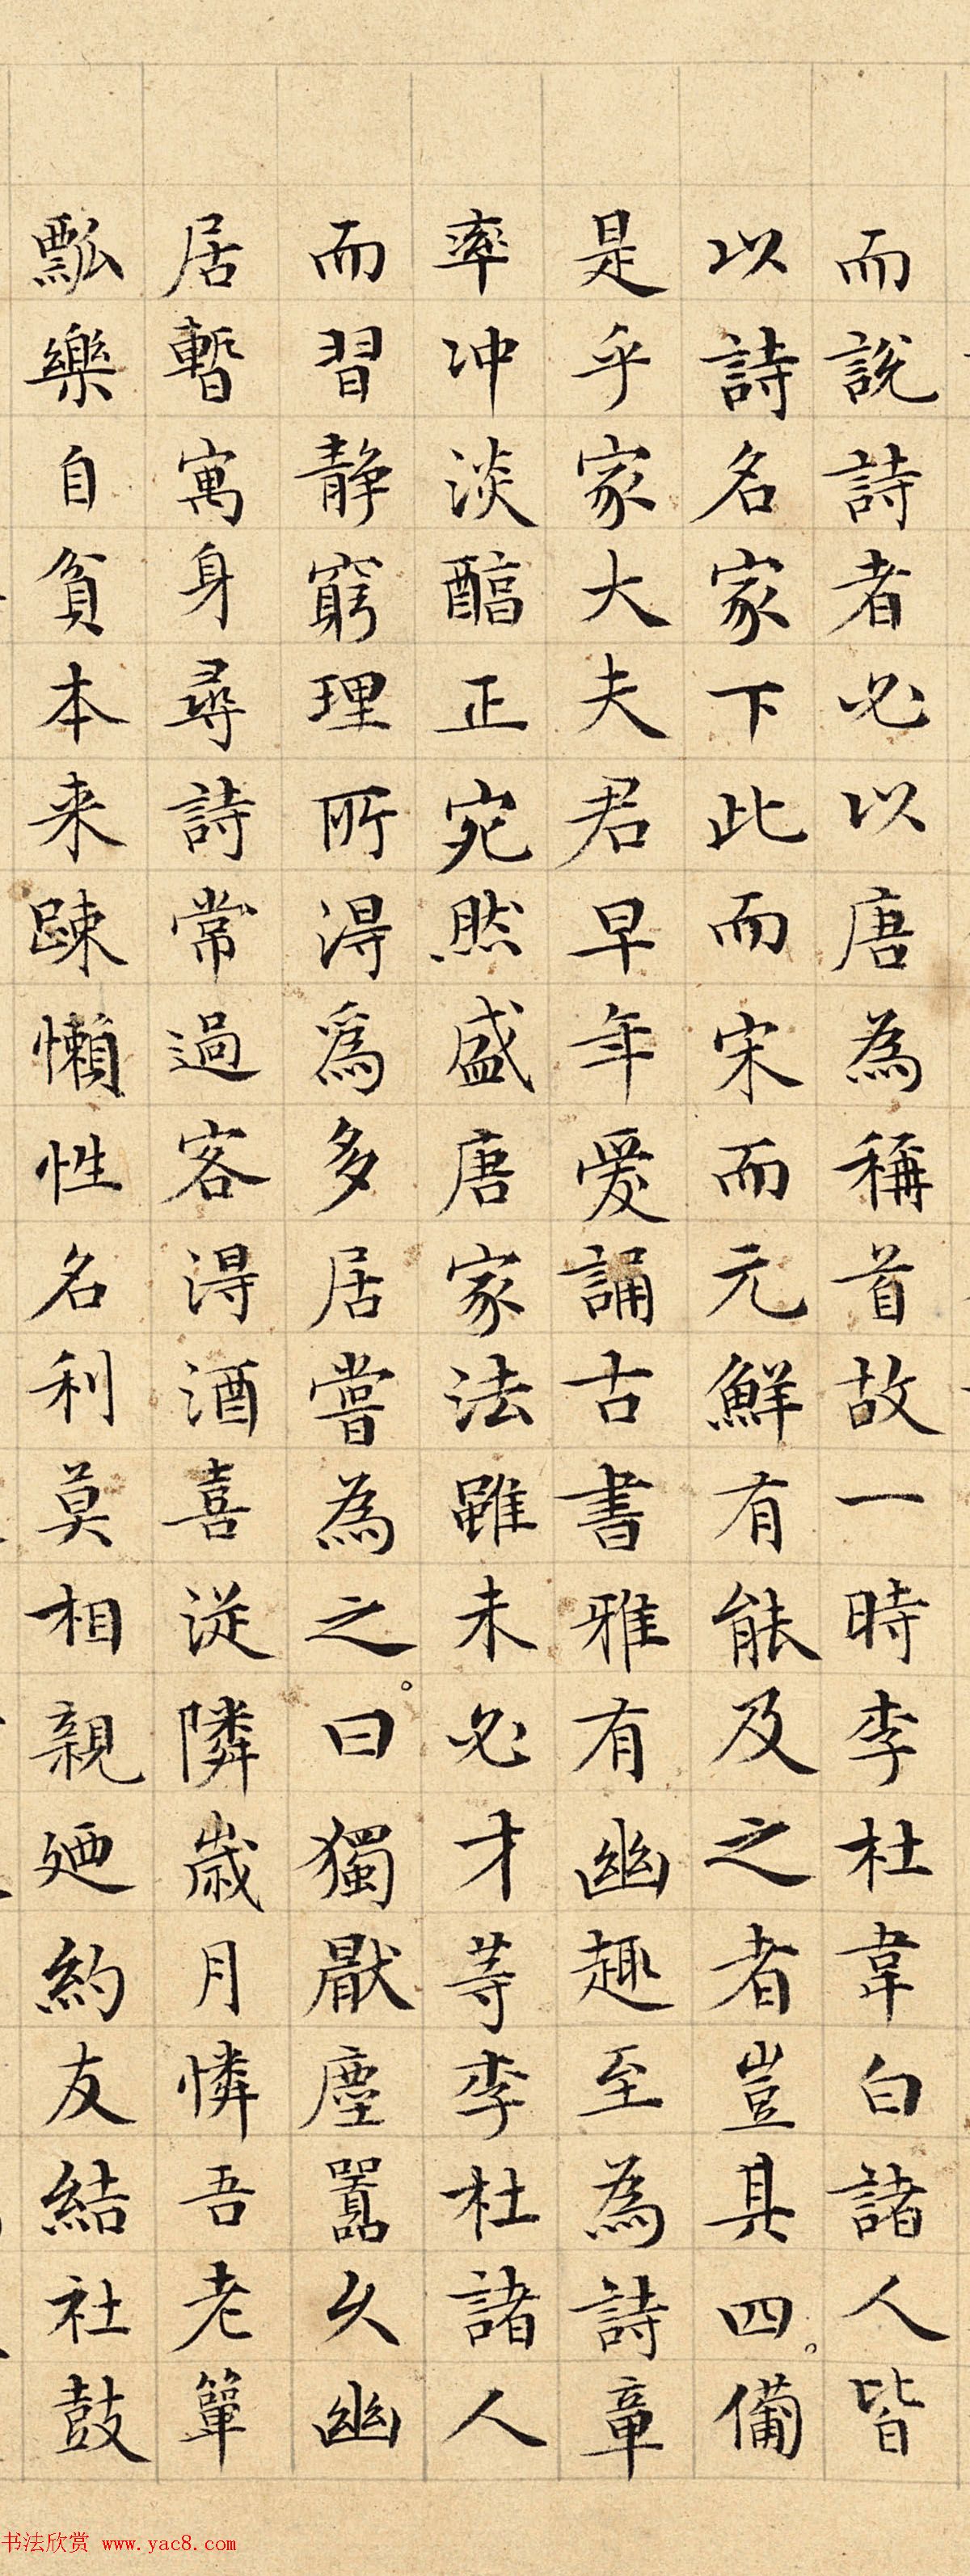 而說詩者必以唐為稱首故一時李杜韋白諸人皆
以詩名家下此而宋而元鮮有能及之者豈具四。備
是乎家大夫君早年爱誦古書雅有幽趣至為詩章
率冲淡醕正宛然盛唐家法雖未必才等李杜諸人
而習静窮理所淂爲多居嘗為之。曰獨厭塵囂久幽
居暫寓身尋詩常過客淂酒喜従隣歳月憐吾老簞
瓢樂自貧本来踈懶性名利莫相親廼約友結社鼓
书法欣赏 www.yac8.com